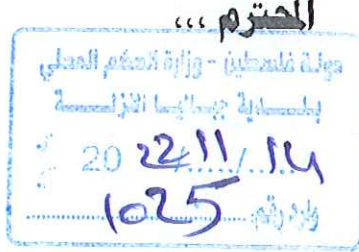 المحترم ...
دولة فلسطين - وزارة الحكم المحلي
بلدية جباليا النزلة
20 22/11/14
وارد رقم 1025